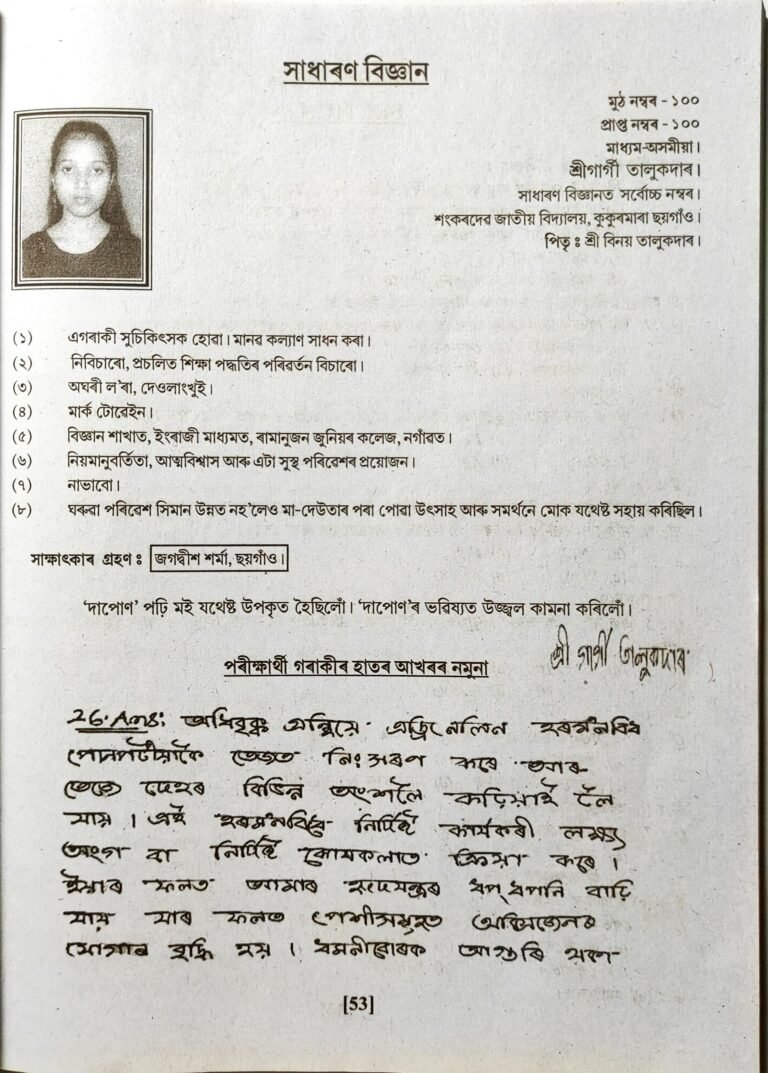 সাধাৰণ বিজ্ঞান
মুঠ নম্বৰ - ১০০
প্ৰাপ্ত নম্বৰ - ১০০
মাধ্যম-অসমীয়া।
শ্ৰীগাৰ্গী তালুকদাৰ।
সাধাৰণ বিজ্ঞানত সৰ্বোচ্চ নম্বৰ।
শংকৰদেৱ জাতীয় বিদ্যালয়, কুকুৰমাৰা ছয়গাঁও।
পিতৃ ঃ শ্ৰী বিনয় তালুকদাৰ।
(১) এগৰাকী সুচিকিৎসক হোৱা। মানৱ কল্যাণ সাধন কৰা।
(২) নিবিচাৰো, প্ৰচলিত শিক্ষা পদ্ধতিৰ পৰিৱৰ্তন বিচাৰো।
(৩) অঘৰী ল'ৰা, দেওলাংখুই।
(৪) মাৰ্ক টোৱেইন।
(৫) বিজ্ঞান শাখাত, ইংৰাজী মাধ্যমত, ৰামানুজন জুনিয়ৰ কলেজ, নগাঁৱত।
(৬) নিয়মানুবৰ্তিতা, আত্মবিশ্বাস আৰু এটা সুস্থ পৰিৱেশৰ প্ৰয়োজন।
(৭) নাভাবো।
(৮) ঘৰুৱা পৰিৱেশ সিমান উন্নত নহ'লেও মা-দেউতাৰ পৰা পোৱা উৎসাহ আৰু সমৰ্থনে মোক যথেষ্ট সহায় কৰিছিল।
সাক্ষাৎকাৰ গ্ৰহণ ঃ জগদ্বীশ শৰ্মা, ছয়গাঁও।
'দাপোণ' পঢ়ি মই যথেষ্ট উপকৃত হৈছিলোঁ। 'দাপোণ'ৰ ভৱিষ্যত উজ্জ্বল কামনা কৰিলোঁ।
শ্ৰী গাৰ্গী তালুকদাৰ
পৰীক্ষাৰ্থী গৰাকীৰ হাতৰ আখৰৰ নমুনা
26. Ans: অধিবৃক্ক গ্ৰন্থিয়ে এড্ৰিনেলিন হৰমনবিধ
পোনপটীয়াকৈ তেজত নিঃসৰণ কৰে আৰু
তেজে দেহৰ বিভিন্ন অংশলৈ কঢ়িয়াই লৈ
যায়। এই হৰমনবিধে নিৰ্দিষ্ট কাৰ্যকৰী লক্ষ্য
অংগ বা নিৰ্দিষ্ট কোষকলাত ক্ৰিয়া কৰে।
ইয়াৰ ফলত আমাৰ হৃদযন্ত্ৰৰ ধপ্‌ধপনি বাঢ়ি
যায় যাৰ ফলত পেশীসমূহত অক্সিজেনৰ
যোগান বৃদ্ধি হয়। ধমনীবোৰক আগুৰি থকা
[53]